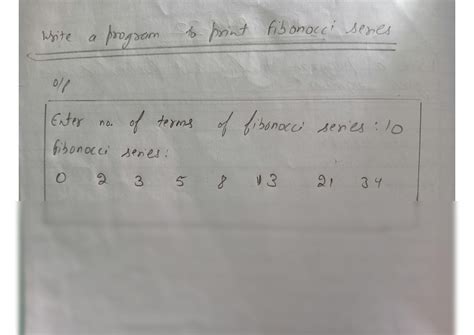 Write a program to print fibonacci series
O/P
Enter no. of terms of fibonacci series : 10
fibonacci series :
0 2 3 5 8 13 21 34